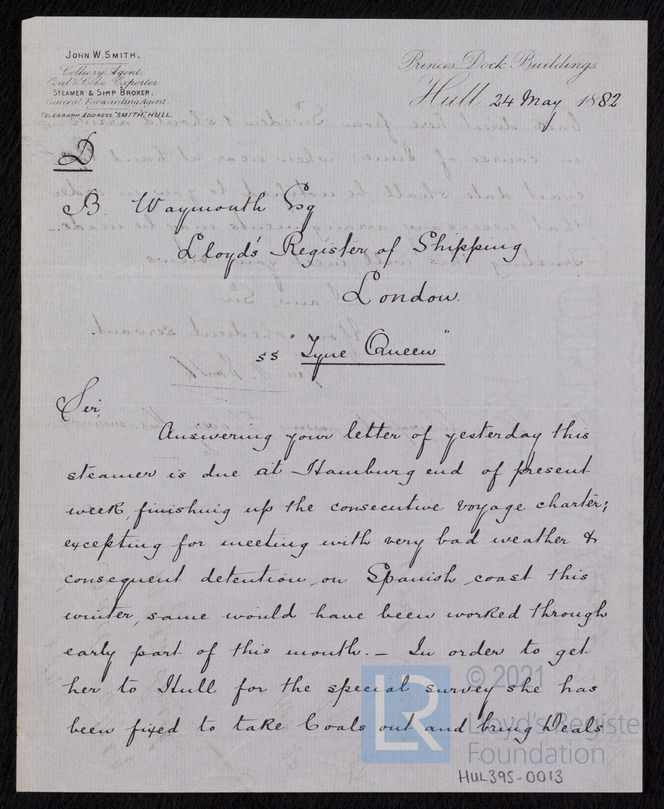 JOHN W. SMITH.
Colliery Agent
Coal & Coke Exporter
STEAMER & SHIP BROKER.
General Forwarding Agent
TELEGRAPH ADDRESS, "SMITH" HULL.
Princes Dock Buildings
Hull 24 May 1882
D
B. Waymouth Esq
Lloyd's Register of Shipping
London.
ss "Tyne Queen"
Sir,
Answering your letter of yesterday this
steamer is due at Hamburg end of present
week finishing up the consecutive voyage charter;
excepting for meeting with very bad weather &
consequent detention on Spanish coast this
winter, same would have been worked through
early part of this month. — In order to get
her to Hull for the special survey she has
been fixed to take Coals out and bring Deals
LR
© 2021
Lloyd's Register
Foundation
HUL395-0013